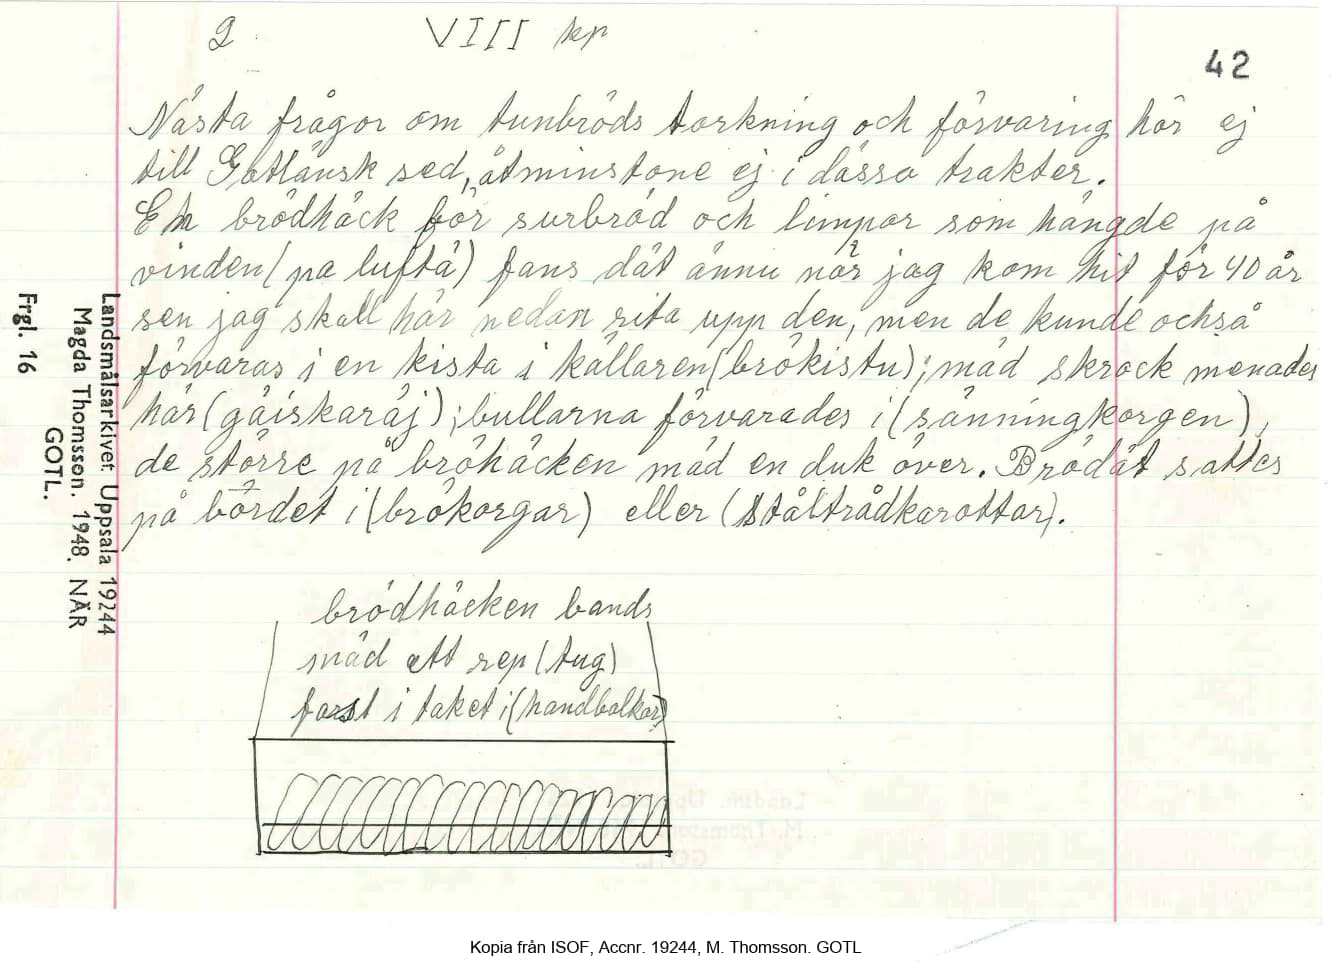 2 VIII kp
42
Nästa frågor om tunbröds torkning och förvaring hör ej
till Gotländsk sed, åtminstone ej i dässa trakter.
En brödhäck för surbröd och limpor som hängde på
vinden (pa luftä) fans dät ännu när jag kom hit för 40 år
sen jag skall här nedan rita upp den, men de kunde också
förvaras i en kista i källaren (brökistu); mäd skrock menades
här (gäiskaräj); bullarna förvarades i (sänningkorgen),
de större på bröhäcken mäd en duk över. Brödät sattes
på bordet i (brökorgar) eller (ståltrådkarottar).
brödhäcken bands
mäd ett rep (tug)
fast i taket i (handbalkar)
Landsmålsarkivet Uppsala 19244
Magda Thomsson. 1948. NÄR
GOTL.
Frgl. 16
Landsm. Upps.
M. Thomsson
GOTL.
Kopia från ISOF, Accnr. 19244, M. Thomsson. GOTL